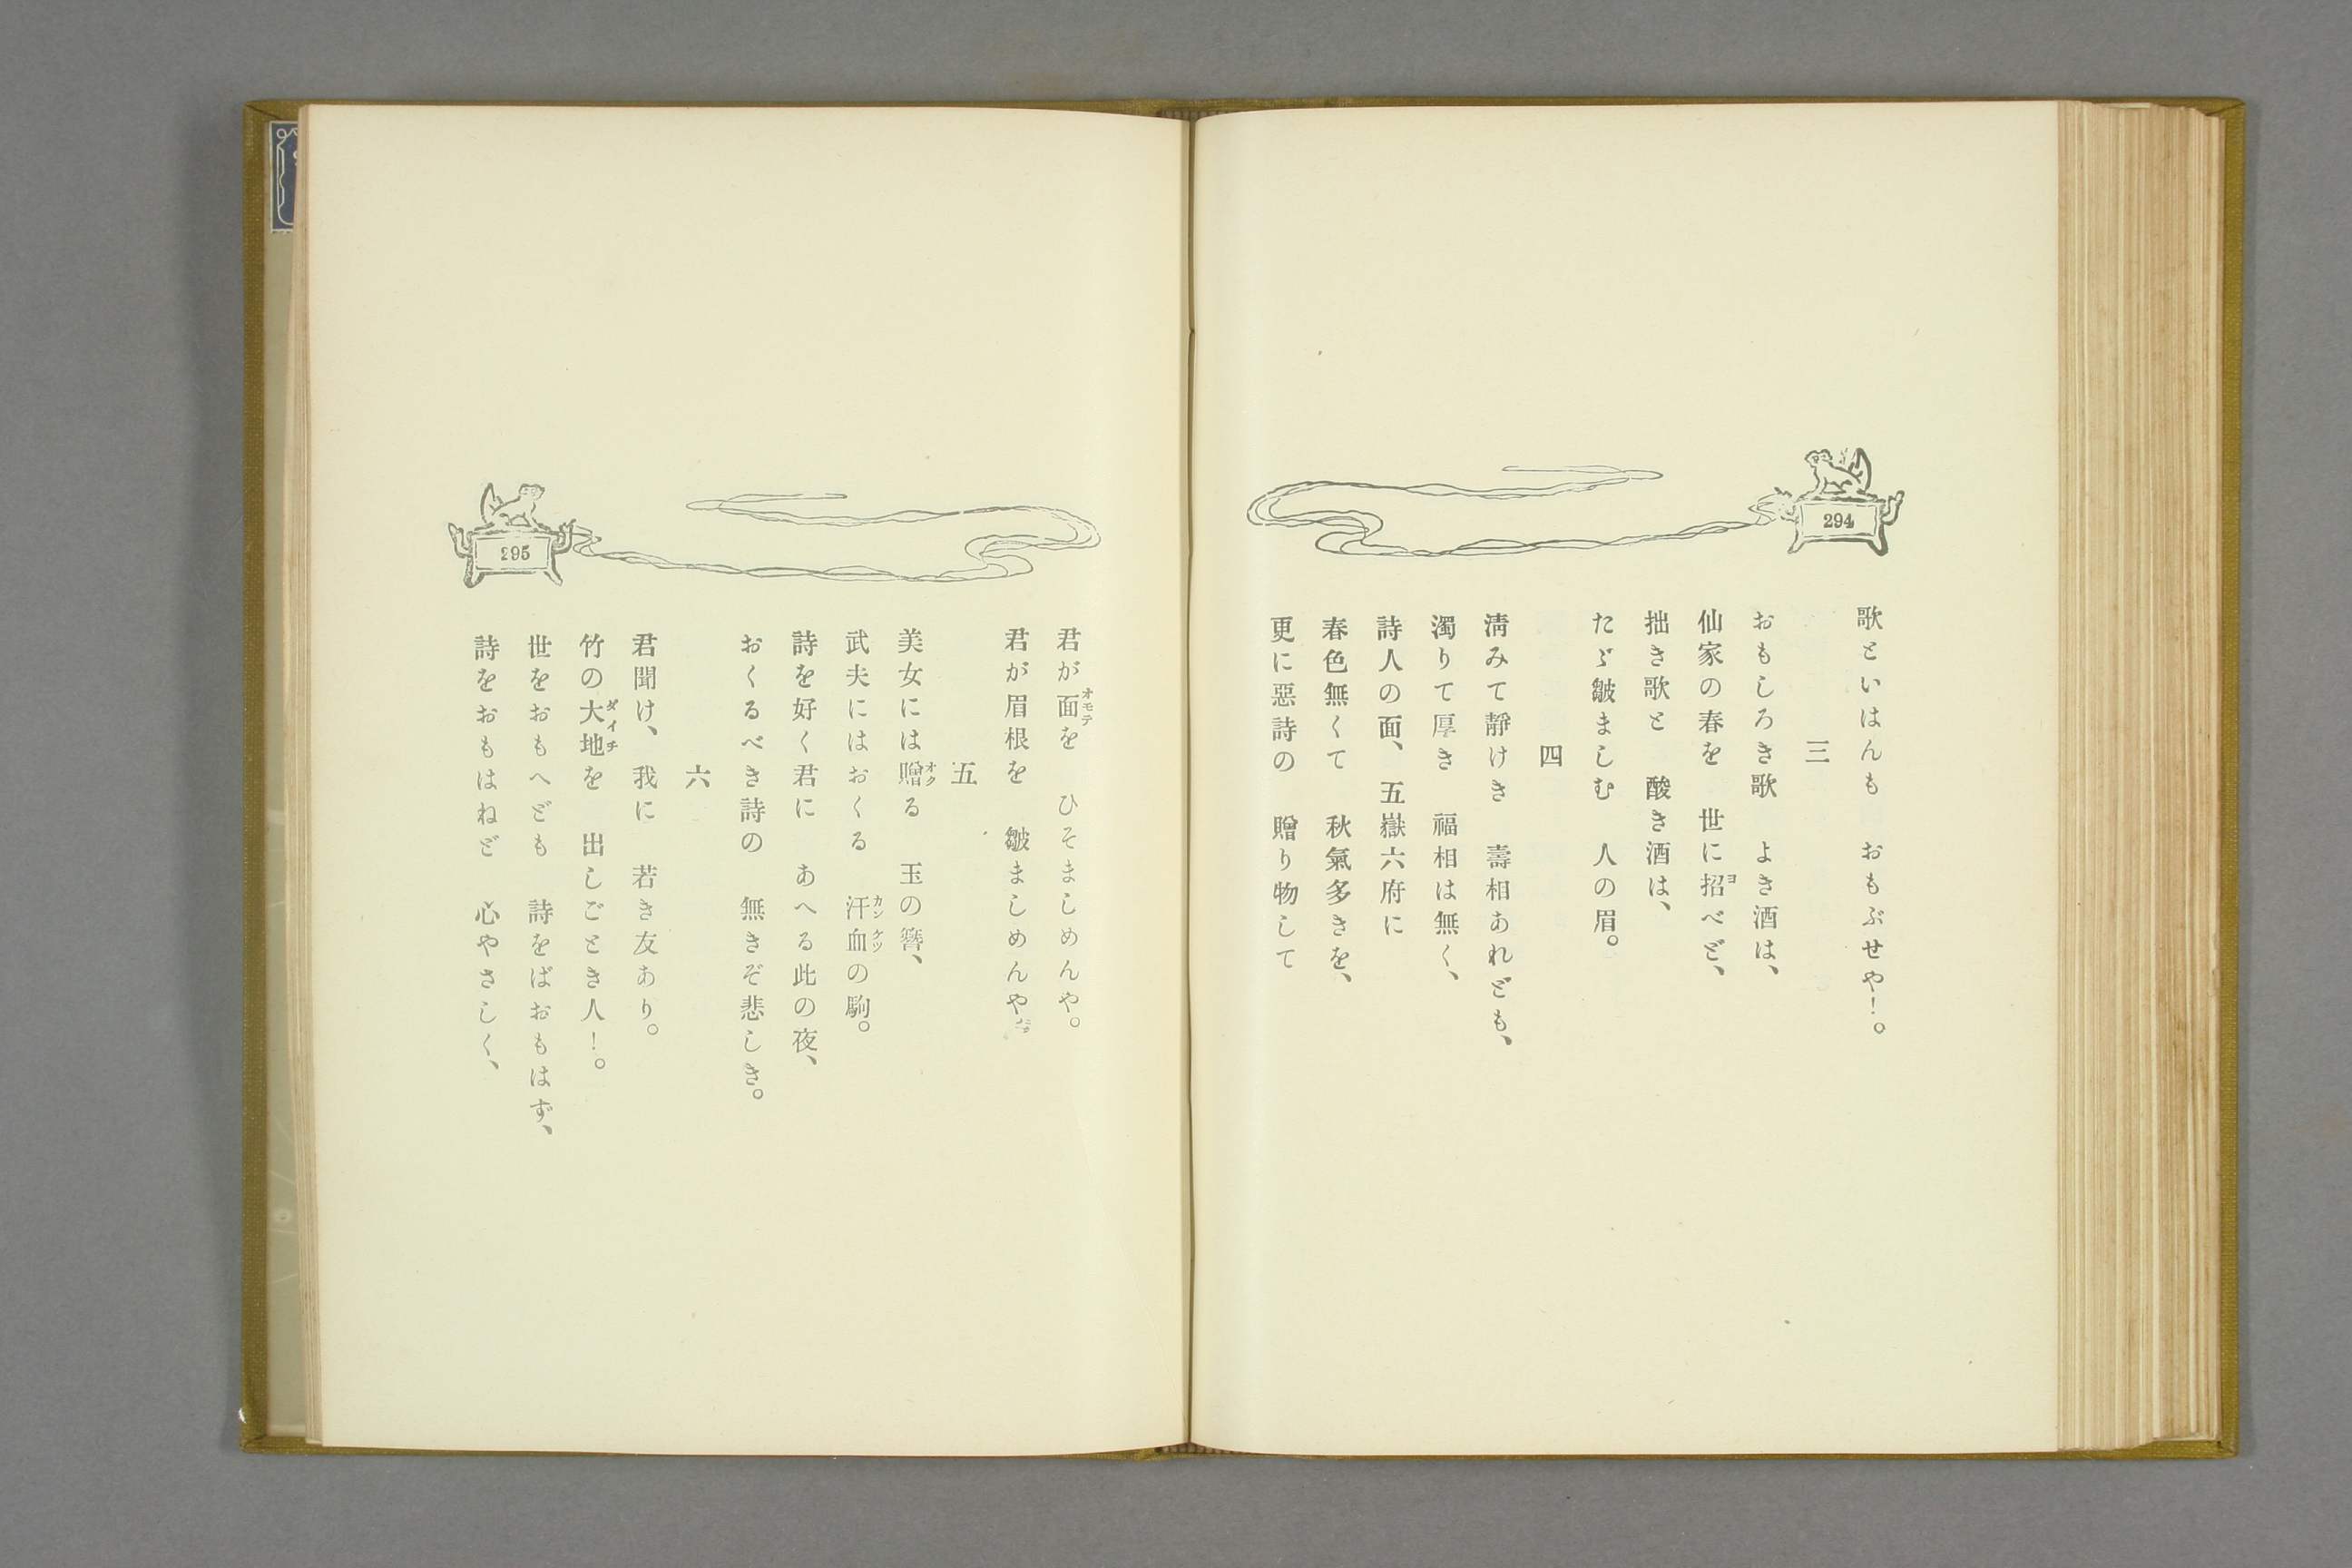 294
歌といはんも　おもぶせや！。
三
おもしろき歌　よき酒は、
仙家の春を　世に招べど、
拙き歌と　酸き酒は、
たゞ皺ましむ　人の眉。
四
淸みて靜けき　壽相あれども、
濁りて厚き　福相は無く、
詩人の面、五嶽六府に
春色無くて　秋氣多きを、
更に惡詩の　贈り物して
295
君が面を　ひそましめんや。
君が眉根を　皺ましめんや。
五
美女には贈る　玉の簪、
武夫にはおくる　汗血の駒。
詩を好く君に　あへる此の夜、
おくるべき詩の　無きぞ悲しき。
六
君聞け、我に　若き友あり。
竹の大地を　出しごとき人！。
世をおもへども　詩をばおもはず、
詩をおもはねど　心やさしく、